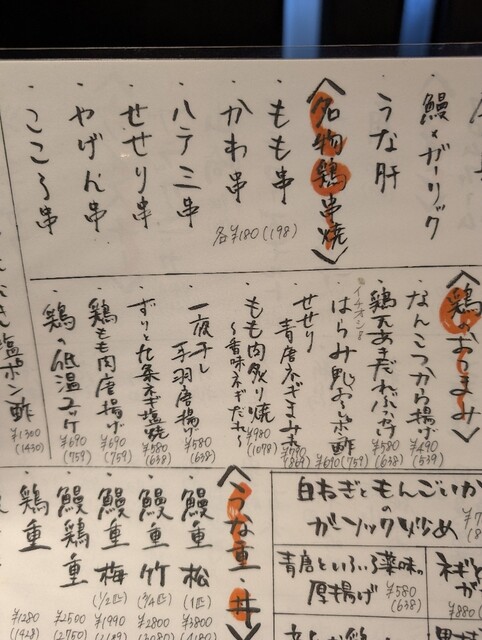 鰻×ガーリック
うな肝
〈名物鶏串焼〉
・もも串
・かわ串
・ハラミ串
・せせり串
・やげん串
・こころ串
各¥180(198)
〈鶏のおつまみ〉
・なんこつから揚げ ¥490(539)
・鶏天あまだれぶっかけ ¥580(638)
イチオシ
・はらみ鬼おろしポン酢 ¥690(759)
・せせり青唐ネギまみれ ¥790(869)
・もも肉炙り焼
～香味ネギだれ ¥980(1078)
・一夜干し手羽唐揚げ ¥580(638)
・ずりと九条ネギ塩焼 ¥580(638)
・鶏もも肉唐揚げ ¥690(759)
・鶏の低温ユッケ ¥690(759)
塩ポン酢 ¥1300(1430)
〈うな重・丼〉
・鰻の重 松(1匹) ¥3800
・鰻の重 竹(3/4匹) ¥2800
・鰻の重 梅(1/2匹) ¥1990
・鰻鶏重 ¥2500(2750)
・鶏重 ¥1280
白ねぎと
の
ガーリック炒め
青唐といろいろ薬味の
厚揚げ ¥580(638)
¥880